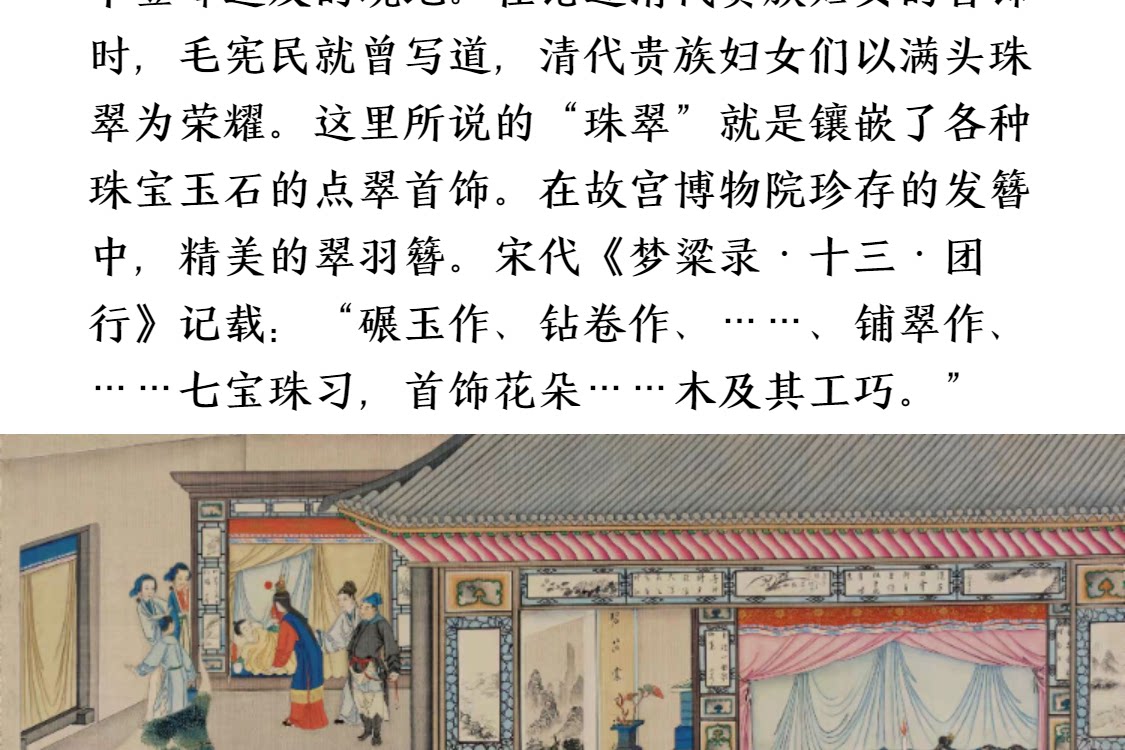 时，毛宪民就曾写道，清代贵族妇女们以满头珠
翠为荣耀。这里所说的“珠翠”就是镶嵌了各种
珠宝玉石的点翠首饰。在故宫博物院珍存的发簪
中，精美的翠羽簪。宋代《梦粱录·十三·团
行》记载：“碾玉作、钻卷作、……、铺翠作、
……七宝珠习，首饰花朵……木及其工巧。”